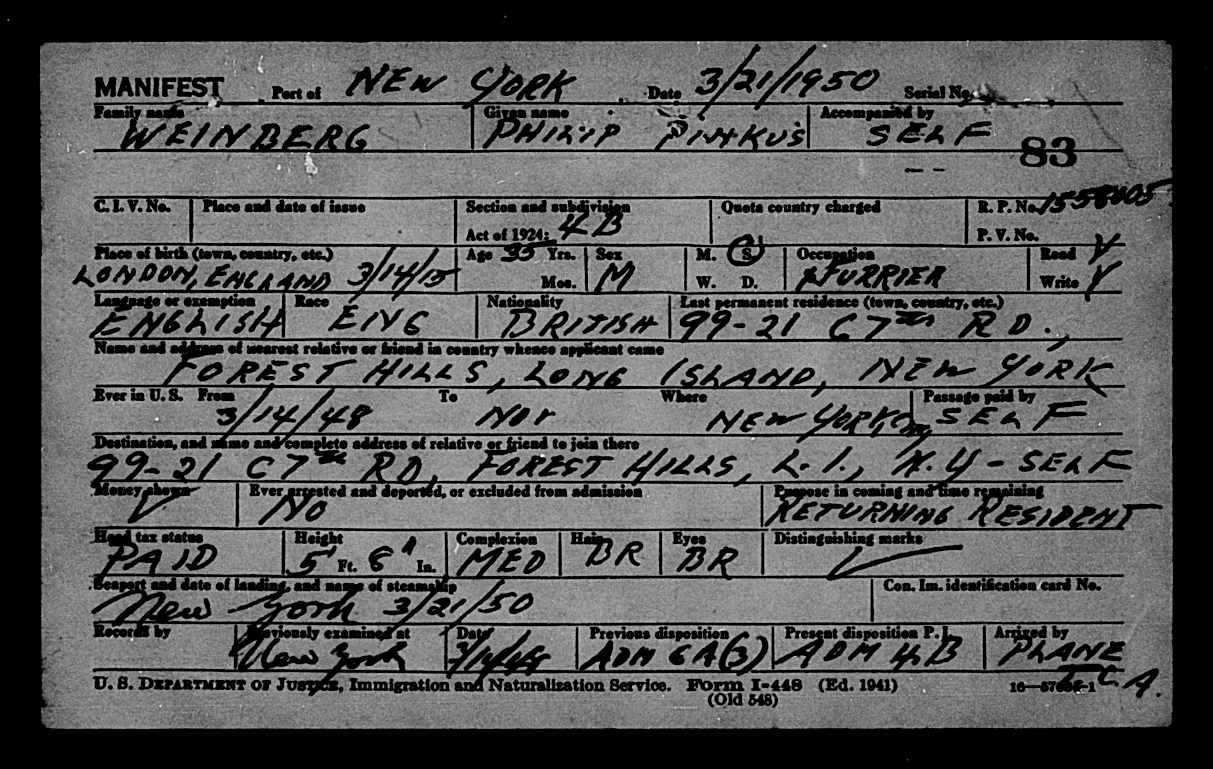 MANIFEST Port of NEW YORK Date 3/21/1950 Serial No.
Family name Given name Accompanied by
WEINBERG PHILIP PINKUS SELF
83
C. I. V. No. Place and date of issue Section and subdivision Quota country charged R. P. No. 1558405
Act of 1924: 4B P. V. No.
Place of birth (town, country, etc.) Age 35 Yrs. Sex M. S. Occupation Read Y
LONDON, ENGLAND 3/14/15 Mos. M W. D. FURRIER Write Y
Language or exemption Race Nationality Last permanent residence (town, country, etc.)
ENGLISH ENG BRITISH 99-21 67TH RD.,
Name and address of nearest relative or friend in country whence applicant came
FOREST HILLS, LONG ISLAND, NEW YORK
Ever in U. S. From To Where Passage paid by
3/14/48 NOV NEW YORK SELF
Destination, and name and complete address of relative or friend to join there
99-21 67TH RD, FOREST HILLS, L.I., N.Y - SELF
Money shown Ever arrested and deported, or excluded from admission Purpose in coming and time remaining
NO RETURNING RESIDENT
Head tax status Height Complexion Hair Eyes Distinguishing marks
PAID 5' Ft. 8" In. MED BR BR
Seaport and date of landing, and name of steamship Con. Im. identification card No.
New York 3/21/50
Records by Previously examined at Date Previous disposition Present disposition P. I. Arrived by
New York ADM 6A(3) ADM 4B PLANE
U. S. DEPARTMENT OF JUSTICE, Immigration and Naturalization Service. Form I-448 (Ed. 1941) T.C.A.
(Old 548)